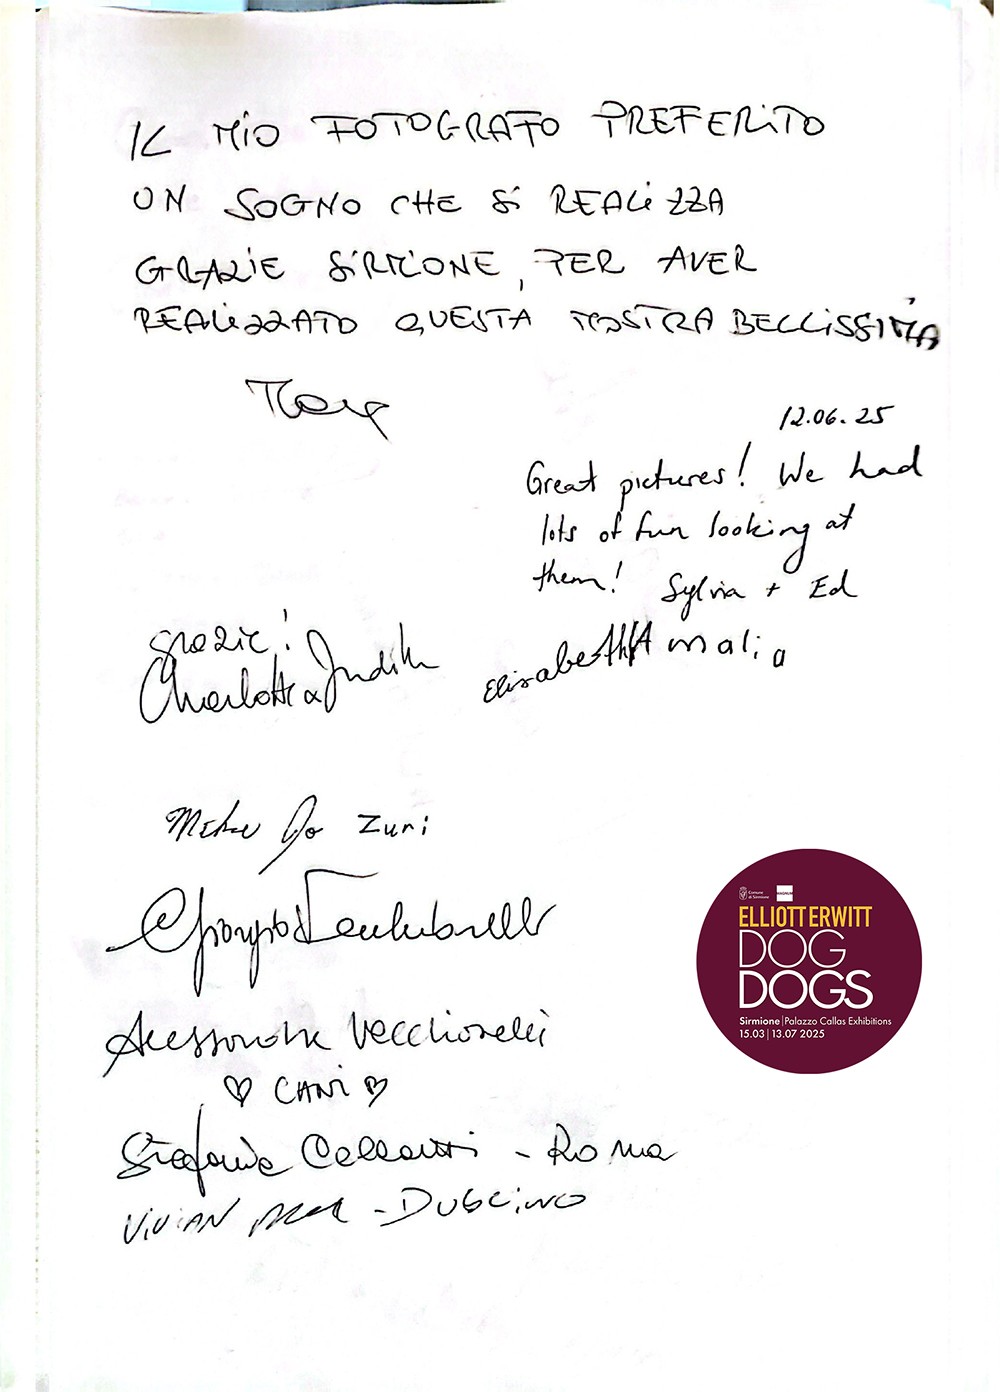 IL MIO FOTOGRAFO PREFERITO
UN SOGNO CHE SI REALIZZA
GRAZIE SIRMIONE, PER AVER
REALIZZATO QUESTA MOSTRA BELLISSIMA
12.06.25
Great pictures! We had
lots of fun looking at
them! Sylvia + Ed
grazie!
Charlotte & Judith
Elisabeth Amalia
Zuri
Alessandra Vecchiarelli
♡ CANI ♡
Stefania - Roma
VIVIAN - DUBLINO
Comune
di Sirmione
MAGNUM
ELLIOTT ERWITT
DOG
DOGS
Sirmione | Palazzo Callas Exhibitions
15.03 | 13.07 2025